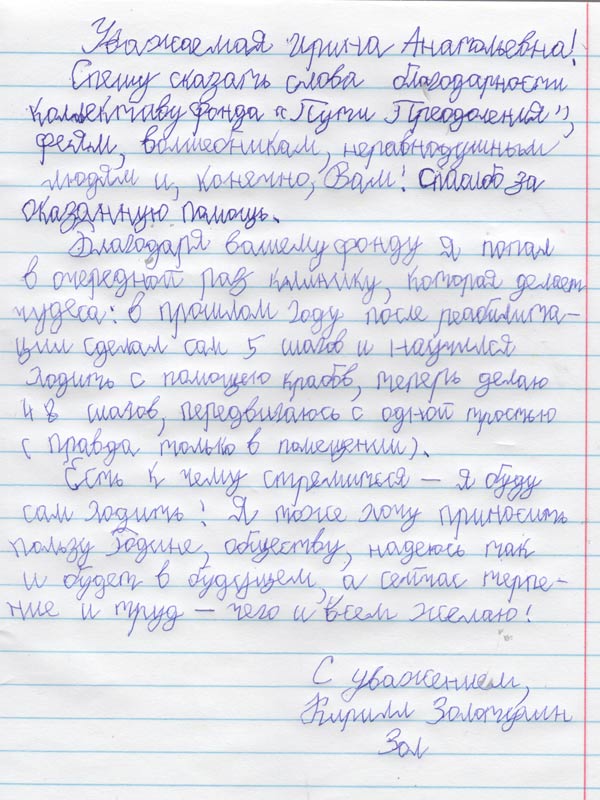 Уважаемая Ирина Анатольевна!
Спешу сказать слова благодарности
коллективу фонда "Пути Преодоления",
феям, волшебникам, неравнодушным
людям и, конечно, Вам! Спасибо за
оказанную помощь.
Благодаря вашему фонду я попал
в очередной раз клинику, которая делает
чудеса: в прошлом году после реабилита-
ции сделал сам 5 шагов и научился
ходить с помощью крабов, теперь делаю
48 шагов, передвигаюсь с одной тростью
(правда только в помещении).
Есть к чему стремиться – я буду
сам ходить! Я тоже хочу приносить
пользу Родине, обществу, надеюсь так
и будет в будущем, а сейчас терпе-
ние и труд – чего и всем желаю!
С уважением,
Кирилл
Зол